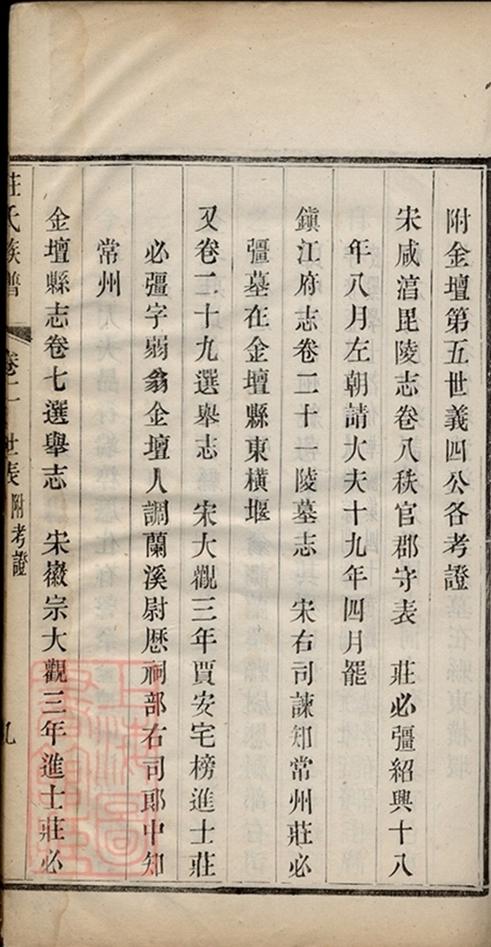 附金壇第五世義四公各考證
宋咸湻毘陵志卷八秩官郡守表　莊必彊紹興十八
年八月左朝請大夫十九年四月罷
鎭江府志卷二十一陵墓志　宋右司諫知常州莊必
彊墓在金壇縣東橫堰
又卷二十九選舉志　宋大觀三年賈安宅榜進士莊
必彊字弱翁金壇人調蘭溪尉歷祠部右司郎中知
常州
金壇縣志卷七選舉志　宋徽宗大觀三年進士莊必
莊氏族譜　卷二　世表附考證　九